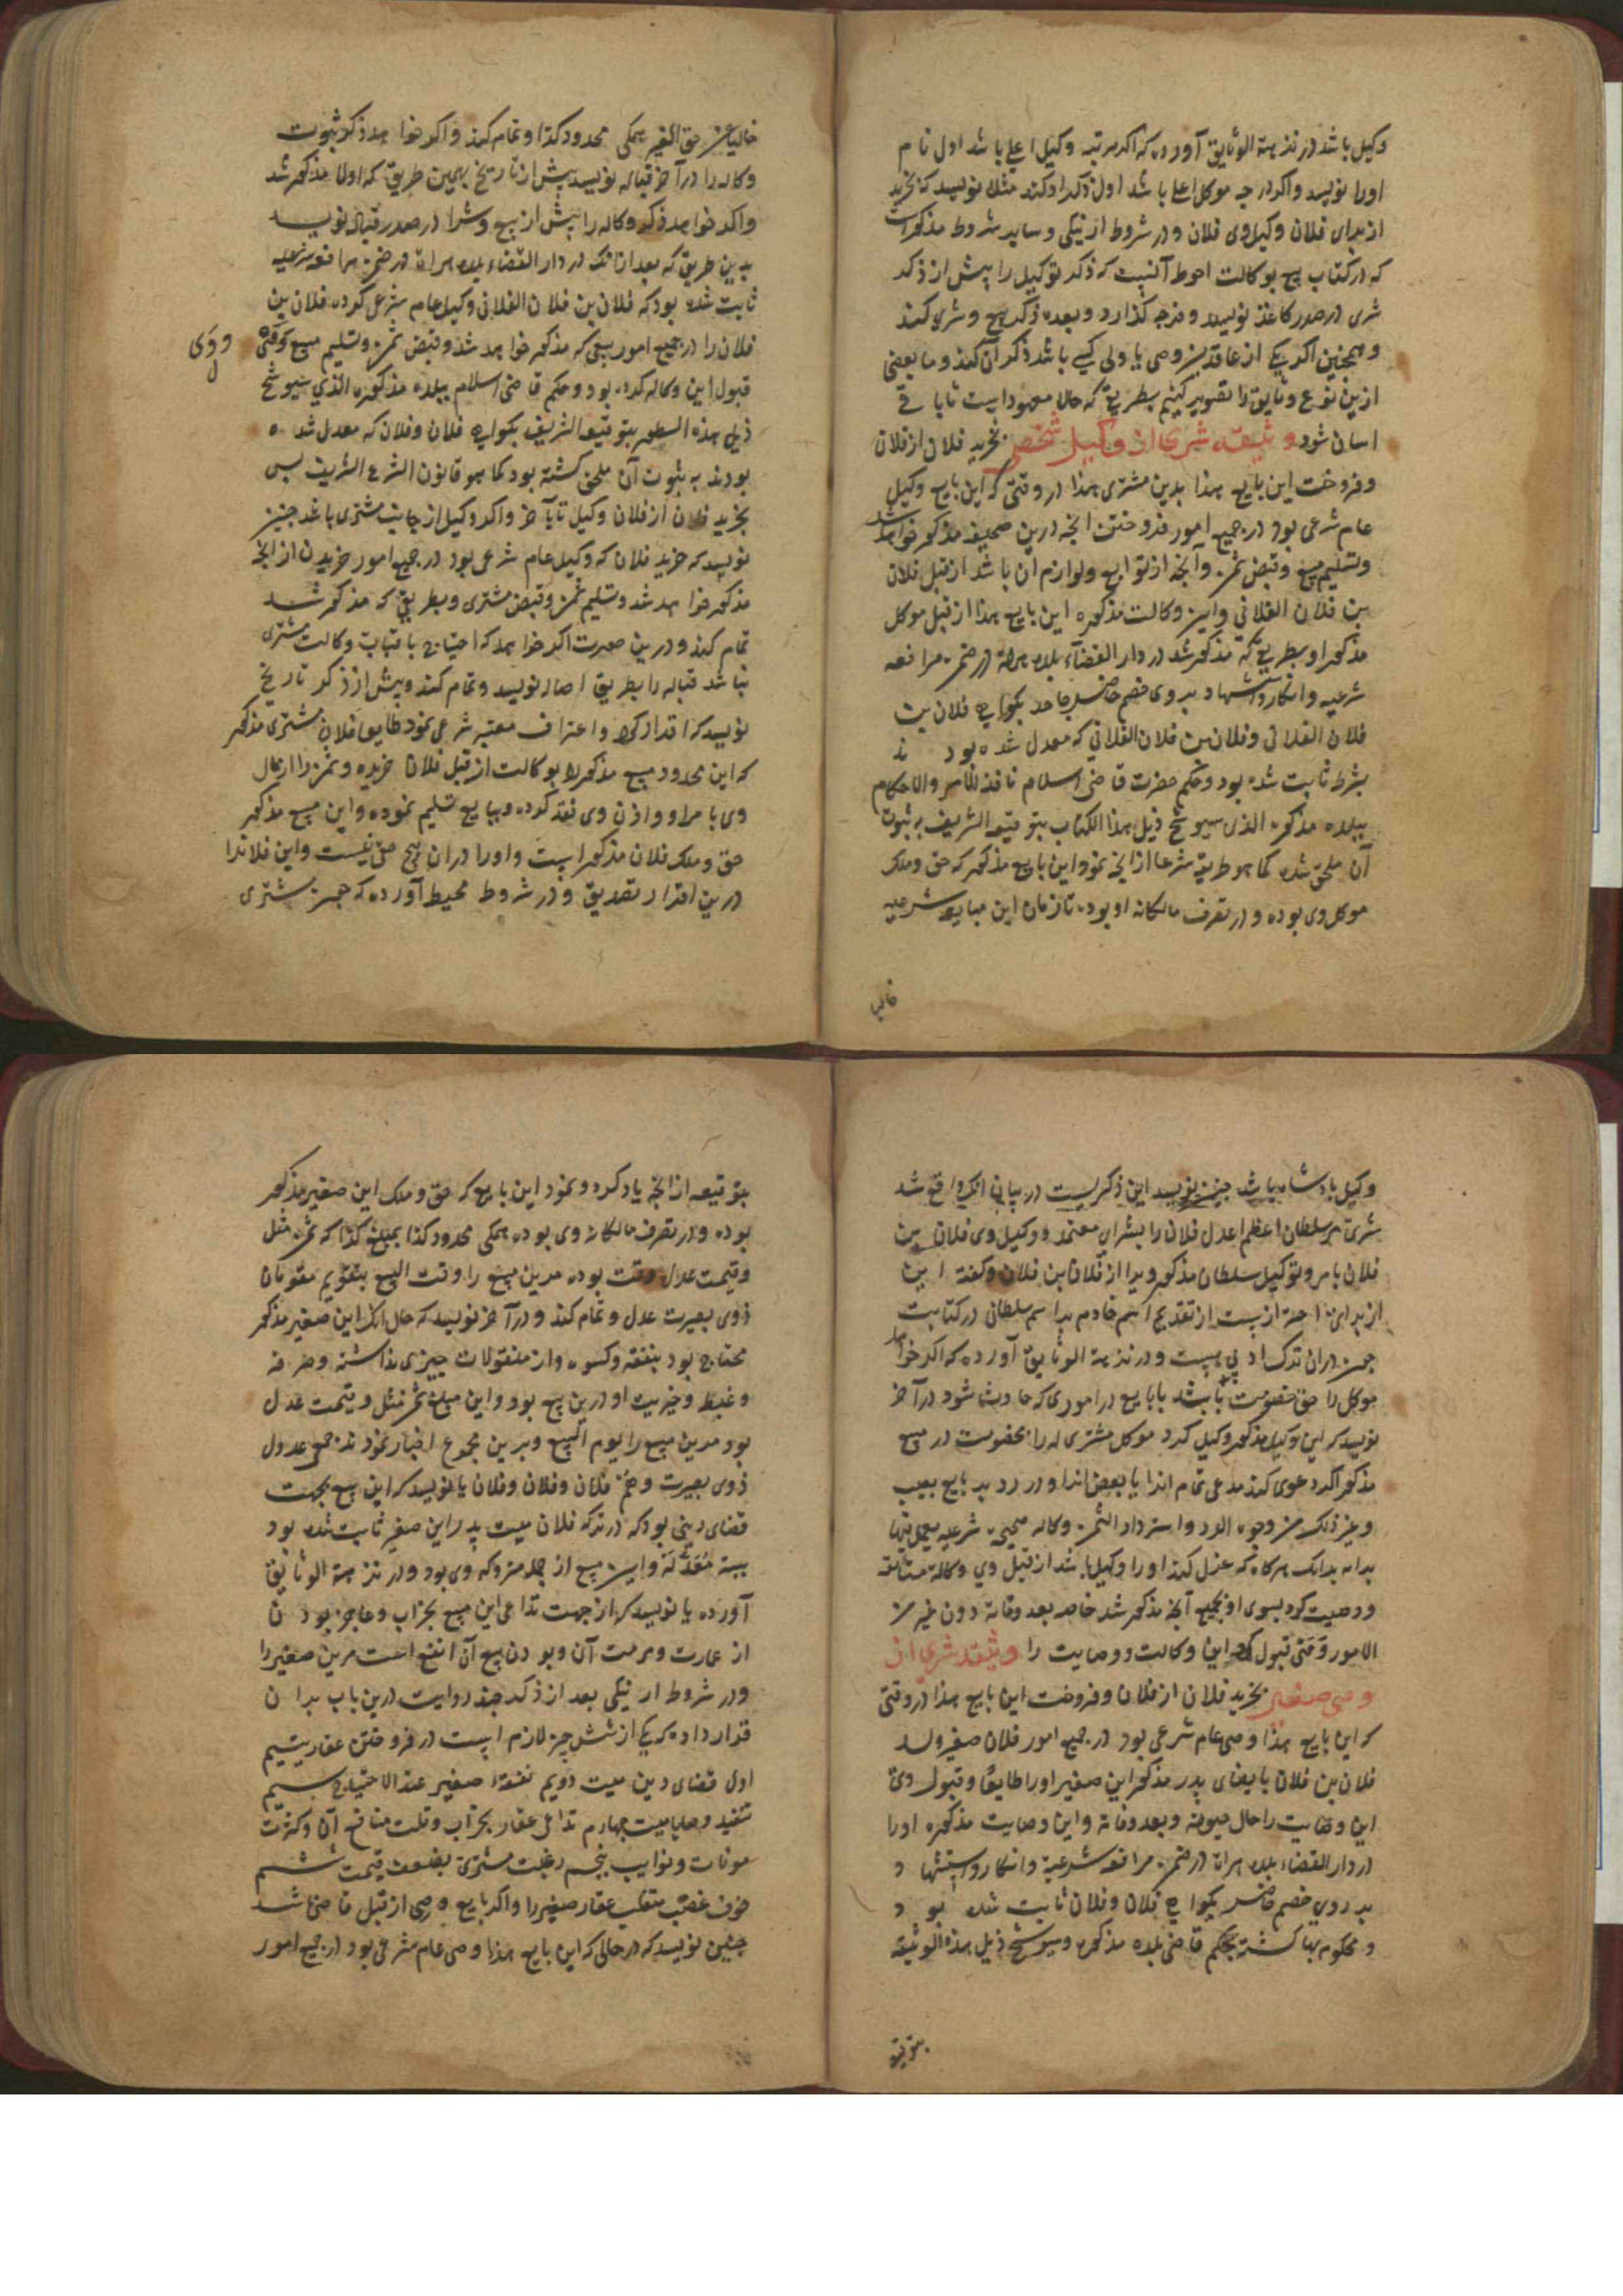 وکیل باشد در نزهة الوثایق آورده که اکر مرتبه وکیل اعلی باشد اول نام
اورا نویسد واکر درجه موکل اعلی باشد اول ذکر او کند مثلا نویسد که بخرید
از برای فلان وکیل وی فلان ودر شروط ارنیکی وسایر شروط مذکور است
که در کتاب بیع بوکالت احوط آنست که ذکر توکیل را پیش از ذکر
شری در صدر کاغذ نویسد وفرجه کذارد وبعده ذکر بیع وشری کند
وهمچنین اکر یکی از عاقدین وصی یا ولی کسی باشد ذکر آن کند وما بعضی
ازین نوع وثایق را تصویر کنیم بطریقی که حالا معهود است تا باقی
اسان شود وثیقه شری از وکیل شخصی بخرید فلان از فلان
وفروخت این بایع هذا بدین مشتری هذا در وقتی که این بایع وکیل
عام شرعی بود در جمیع امور فروختن انچه درین صحیفه مذکور خواهد شد
وتسلیم مبیع وقبض ثمن وآنچه از توابع ولوازم آن باشد از قبل فلان
بن فلان الفلانی واین وکالت مذکوره این بایع هذا از قبل موکل
مذکور او بطریقی که مذکور شد در دار القضاء بلده هراة در ضمن مرافعه
شرعیه وانکار واستشهاد بر وی خصم حاضر جاحد بکواهی فلان بن
فلان الفلانی وفلان بن فلان الفلانی که معدل شده بودند
بشرط ثابت شده بود وحکم حضرت قاضی اسلام نافذ الامر والاحکام
ببلده مذکوره الذی سیوشح ذیل هذا الکتاب بتوقیعه الشریف بر ثبوت
آن ملحق شده کما هو طریقه شرعا از انچه نمود این بایع مذکور که حق وملک
موکل وی بوده ودر تصرف مالکانه او بوده تا زمان این مبایعه شرعیه
خالیا
خالیا عن حق الغیر همکی محدود کذا وتمام کند واکر خواهد ذکر ثبوت
وکاله را در آخر قباله نویسد پیش از تاریخ بهمین طریق که اولا مذکور شد
واکر خواهد ذکر وکاله را پیش از بیع وشرا در صدر قباله نویسد
بدین طریق که بعد از انک در دار القضاء بلده هراة در ضمن مرافعه شرعیه
ثابت شده بود که فلان بن فلان الفلانی وکیل عام شرعی کرده فلان بن
فلان را در جمیع امور بیعی که مذکور خواهد شد وقبض ثمن وتسلیم مبیع
ووی
قبول این وکاله کرده بود وحکم قاضی اسلام ببلده مذکوره الذی سیوشح
ذیل هذه السطور بتوقیعه الشریف بکواهی فلان وفلان که معدل شده
بودند بر ثبوت آن ملحق کشته بود کما هو قانون الشرع الشریف پس
بخرید فلان از فلان وکیل تا بآخر واکر وکیل از جانب مشتری باشد چنین
نویسد که خرید فلان که وکیل عام شرعی بود در جمیع امور خریدن از انچه
مذکور خواهد شد وتسلیم ثمن وقبض مشتری وبطریق که مذکور شد
تمام کند ودرین صورت اکر خواهد که احتیاج باثبات وکالت مشتری
نباشد قباله را بطریق اصار نویسد وتمام کند وپیش از ذکر تاریخ
نویسد که اقرار کرد واعتراف معتبر شرعی نمود طایعا فلان مشتری مذکور
که این محدود مبیع مذکور را بوکالت از قبل فلان خریده وثمن را از مال
وی بامر او واذن وی نقد کرده وببایع تسلیم نموده واین مبیع مذکور
حق وملک فلان مذکور است واورا در آن هیچ حق نیست واین فلان ادا
درین اقرار تصدیق ودر شروط محیط آورده که چون مشتری
وکیل بادشاه باشد چنین نویسد این ذکریست در بیان انک واقع شد
شری مر سلطان اعظم اعدل فلان را بشرای معتمد ووکیل وی فلان بن
فلان بامر وتوکیل سلطان مذکور ویرا از فلان بن فلان وکفته این
از برای احترازیست از تقدیم اسم خادم بر اسم سلطانی در کتابت
چون در آن ترک ادبی هست ودر نزهة الوثایق آورده که اکر خواهد
موکل را حق خصومت باشد بابایع در اموری که حادث شود در آخر
نویسد که این وکیل مذکور وکیل کرد موکل مشتری له را بخصومت در مبیع
مذکور اکر دعوی کند مدعی تمام انرا یا بعض انرا ودر رد بر بایع بعیب
وغیر ذلک من وجوه الرد واسترداد الثمن وکاله صحیحه شرعیه یعمل فیها
برایه بدانک هرکاه که عزل کند اورا وکیل باشد از قبل وی وکاله مستانفه
ووصیت کرد بسوی او بجمیع آنچه مذکور شد خاصه بعد وفاته دون غیر من
الامور ووی قبول کرد این وکالت ووصایت را وثیقه شری از
وصی صغیر بخرید فلان از فلان وفروخت این بایع هذا در وقتی
که این بایع هذا وصی عام شرعی بود در جمیع امور فلان صغیر ولد
فلان بن فلان بایصای پدر مذکور این صغیر اورا طایعا وقبول وی
این وصایت را حال حیوته وبعد وفاته واین وصایت مذکوره اورا
در دار القضاء بلده هراة در ضمن مرافعه شرعیة وانکار واستشهاد
بر روی خصم حاضر بکواهی فلان وفلان ثابت شده بود
ومحکوم بها کشته بحکم قاضی بلده مذکوره وسیوشح ذیل هذه الوثیقه
بتوقیعه
بتوقیعه از انچه یاد کرد ونمود این بایع که حق وملک این صغیر مذکور
بوده ودر تصرف مالکانه وی بوده همکی محدود کذا بمبلغ کذا که ثمن مثل
وقیمت عدل وقت بوده مرین مبیع را وقت البیع بتقویم مقومان
ذوی بصیرت عدل وتمام کند ودر آخر نویسد که حال انک این صغیر مذکور
محتاج بود بنفقه وکسوه واز منقولات چیزی نداشته وصرفه
وغبطه وخیریت او درین بیع بود واین مبلغ ثمن مثل وقیمت عدل
بود مرین مبیع را یوم البیع وبرین مجموع اخبار نمودند جمع عدول
ذوی بصیرت وهم فلان وفلان وفلان یا نویسد که این بیع بجهت
قضای دینی بود که در ترکه فلان میت پدر این صغیر ثابت شده بود
ببینة معدلة واین مبیع از جمله متروکه وی بود ودر نزهة الوثایق
آورده یا نویسد که از جهت تداعی این مبیع بخراب وعاجز بودن
از عمارت ومرمت آن وبودن بیع آن انفع است مرین صغیر را
ودر شروط ارنیکی بعد از ذکر چند روایت درین باب بران
قرار داده که یکی از شش چیز لازم است در فروختن عقار یتیم
اول قضای دین میت دویم نفقه صغیر عند الاحتیاج سیم
تنفیذ وصایا میت چهارم تداعی عقار بخراب وقلت منافع آن وکثرت
مونات ونوایب پنجم رغبت مشتری بضعف قیمت ششم
خوف غصب متغلب عقار صغیر را واکر بایع وصی از قبل قاضی باشد
چنین نویسد که در حالی که این بایع هذا وصی عام شرعی بود در جمیع امور